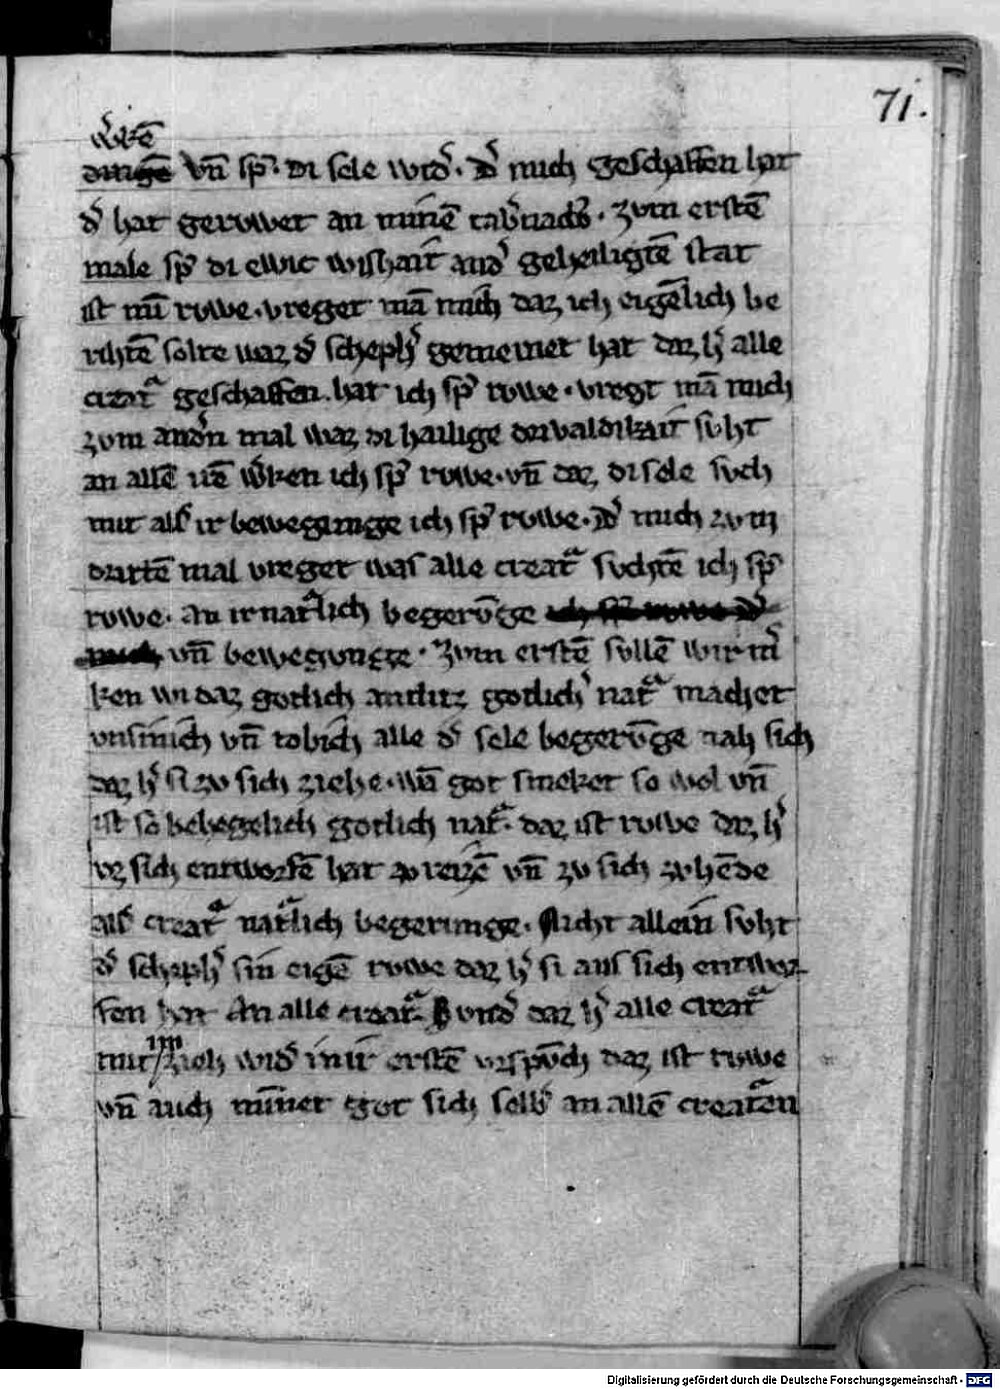 71.
w̾kē
dingē vn̄ sp̾. di sele wid̾. d̾ mich geschaffen hat
d̾ hat geruwet an minē tab̾nackl̾. Zvm erstē
male sp̾ di ewic wishait and̾ geheiligtē stat
ist mī ruwe. vreget mā mich daz ich eigēlich be
rihtē solte waz d̾ scheph̾ gemeinet hat daz h̾ alle
creatͣ geschaffen hat ich sp̾ ruwe. vregt mā mich
zvm andn̾ mal waz di hailige driualdikait svht
an allē irē w̾ken ich sp̾ ruwe. vn̄ daz di sele svch
mit all̾ ir bewegunge ich sp̾ ruwe. d̾ mich zvm
drittē mal vreget was alle creatͣ svchtē ich sp̾
ruwe. an ir natͣlich begerūge ich sp̾ ruwe d̾
mich vn̄ bewegunge. Zvm erstē sullē wir m̾
ken wi daz gotlich antlitz gotlich̾ natͣ machet
vnsinnich vn̄ tobich alle d̾ sele begerūge nah sich
daz h̾ si zv sich ziehe. wā got smeket so wol vn̄
ist so behegelich gotlich natͣ. daz ist ruwe daz h̾
vz sich entworfē hat zv reizē vn̄ zv sich zvhēde
all̾ creatͣ natͣlich begerunge. Nicht allein svht
d̾ scheph̾ sin eigē ruwe daz h̾ si aus sich entwor
fen hat An alle creatͣ. vnd̾ daz h̾ alle creatͣ
mit im zieh wid̾ in ir erstē vrspūch daz ist ruwe
vn̄ auch minnet got sich selb̾ an allē creatͣen
Digitalisierung gefördert durch die Deutsche Forschungsgemeinschaft - DFG